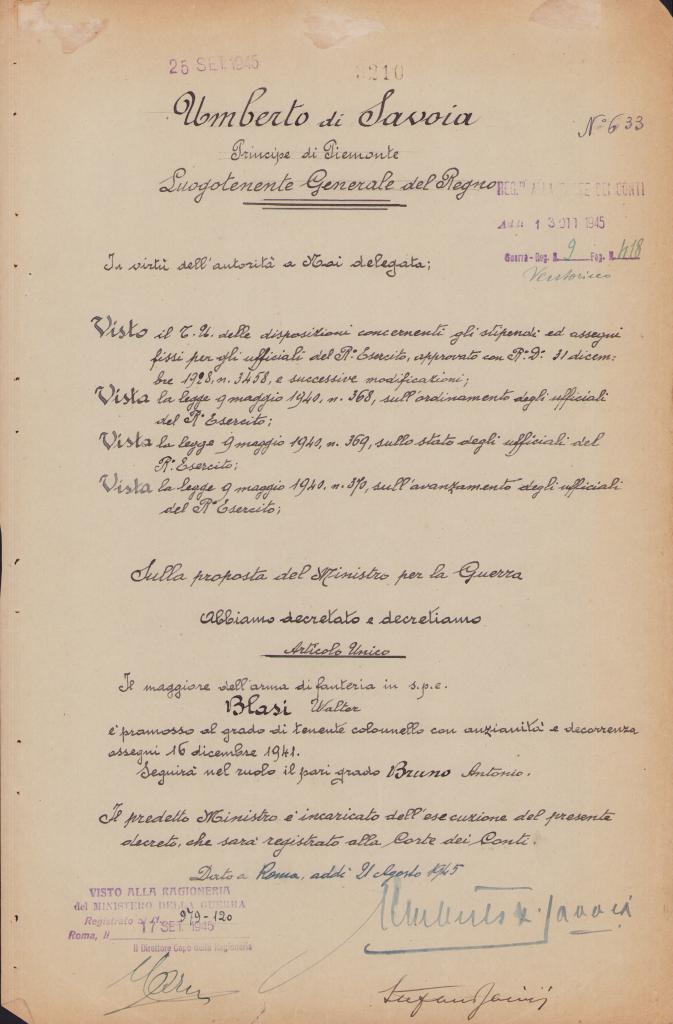 25 SET. 1945
3210
Umberto di Savoia
Nº 633
Principe di Piemonte
Luogotenente Generale del Regno
REG.TO ALLA CORTE DEI CONTI
Addì 13 OTT 1945
Guerra - Reg. N. 9 Fog. N. 418
In virtù dell'autorità a Noi delegata;
Visto il T. U. delle disposizioni concernenti gli stipendi ed assegni
fissi per gli ufficiali del R.º Esercito, approvato con R.º D.º 31 dicem-
bre 1928, n. 3458, e successive modificazioni;
Vista la legge 9 maggio 1940, n. 368, sull'ordinamento degli ufficiali
del R.º Esercito;
Vista la legge 9 maggio 1940, n. 369, sullo stato degli ufficiali del
R.º Esercito;
Vista la legge 9 maggio 1940, n. 370, sull'avanzamento degli ufficiali
del R.º Esercito;
Sulla proposta del Ministro per la Guerra
Abbiamo decretato e decretiamo
Articolo Unico
Il maggiore dell'arma di fanteria in s.p.e.
Blasi Walter
è promosso al grado di tenente colonnello con anzianità e decorrenza
assegni 16 dicembre 1941.
Seguirà nel ruolo il pari grado Bruno Antonio.
Il predetto Ministro è incaricato dell'esecuzione del presente
decreto, che sarà registrato alla Corte dei Conti.
Dato a Roma, addì 21 Agosto 1945
VISTO ALLA RAGIONERIA
del MINISTERO DELLA GUERRA
Registrato al N. 979-120
Roma, li 17 SET. 1945
Il Direttore Capo della Ragioneria
Umberto di Savoia